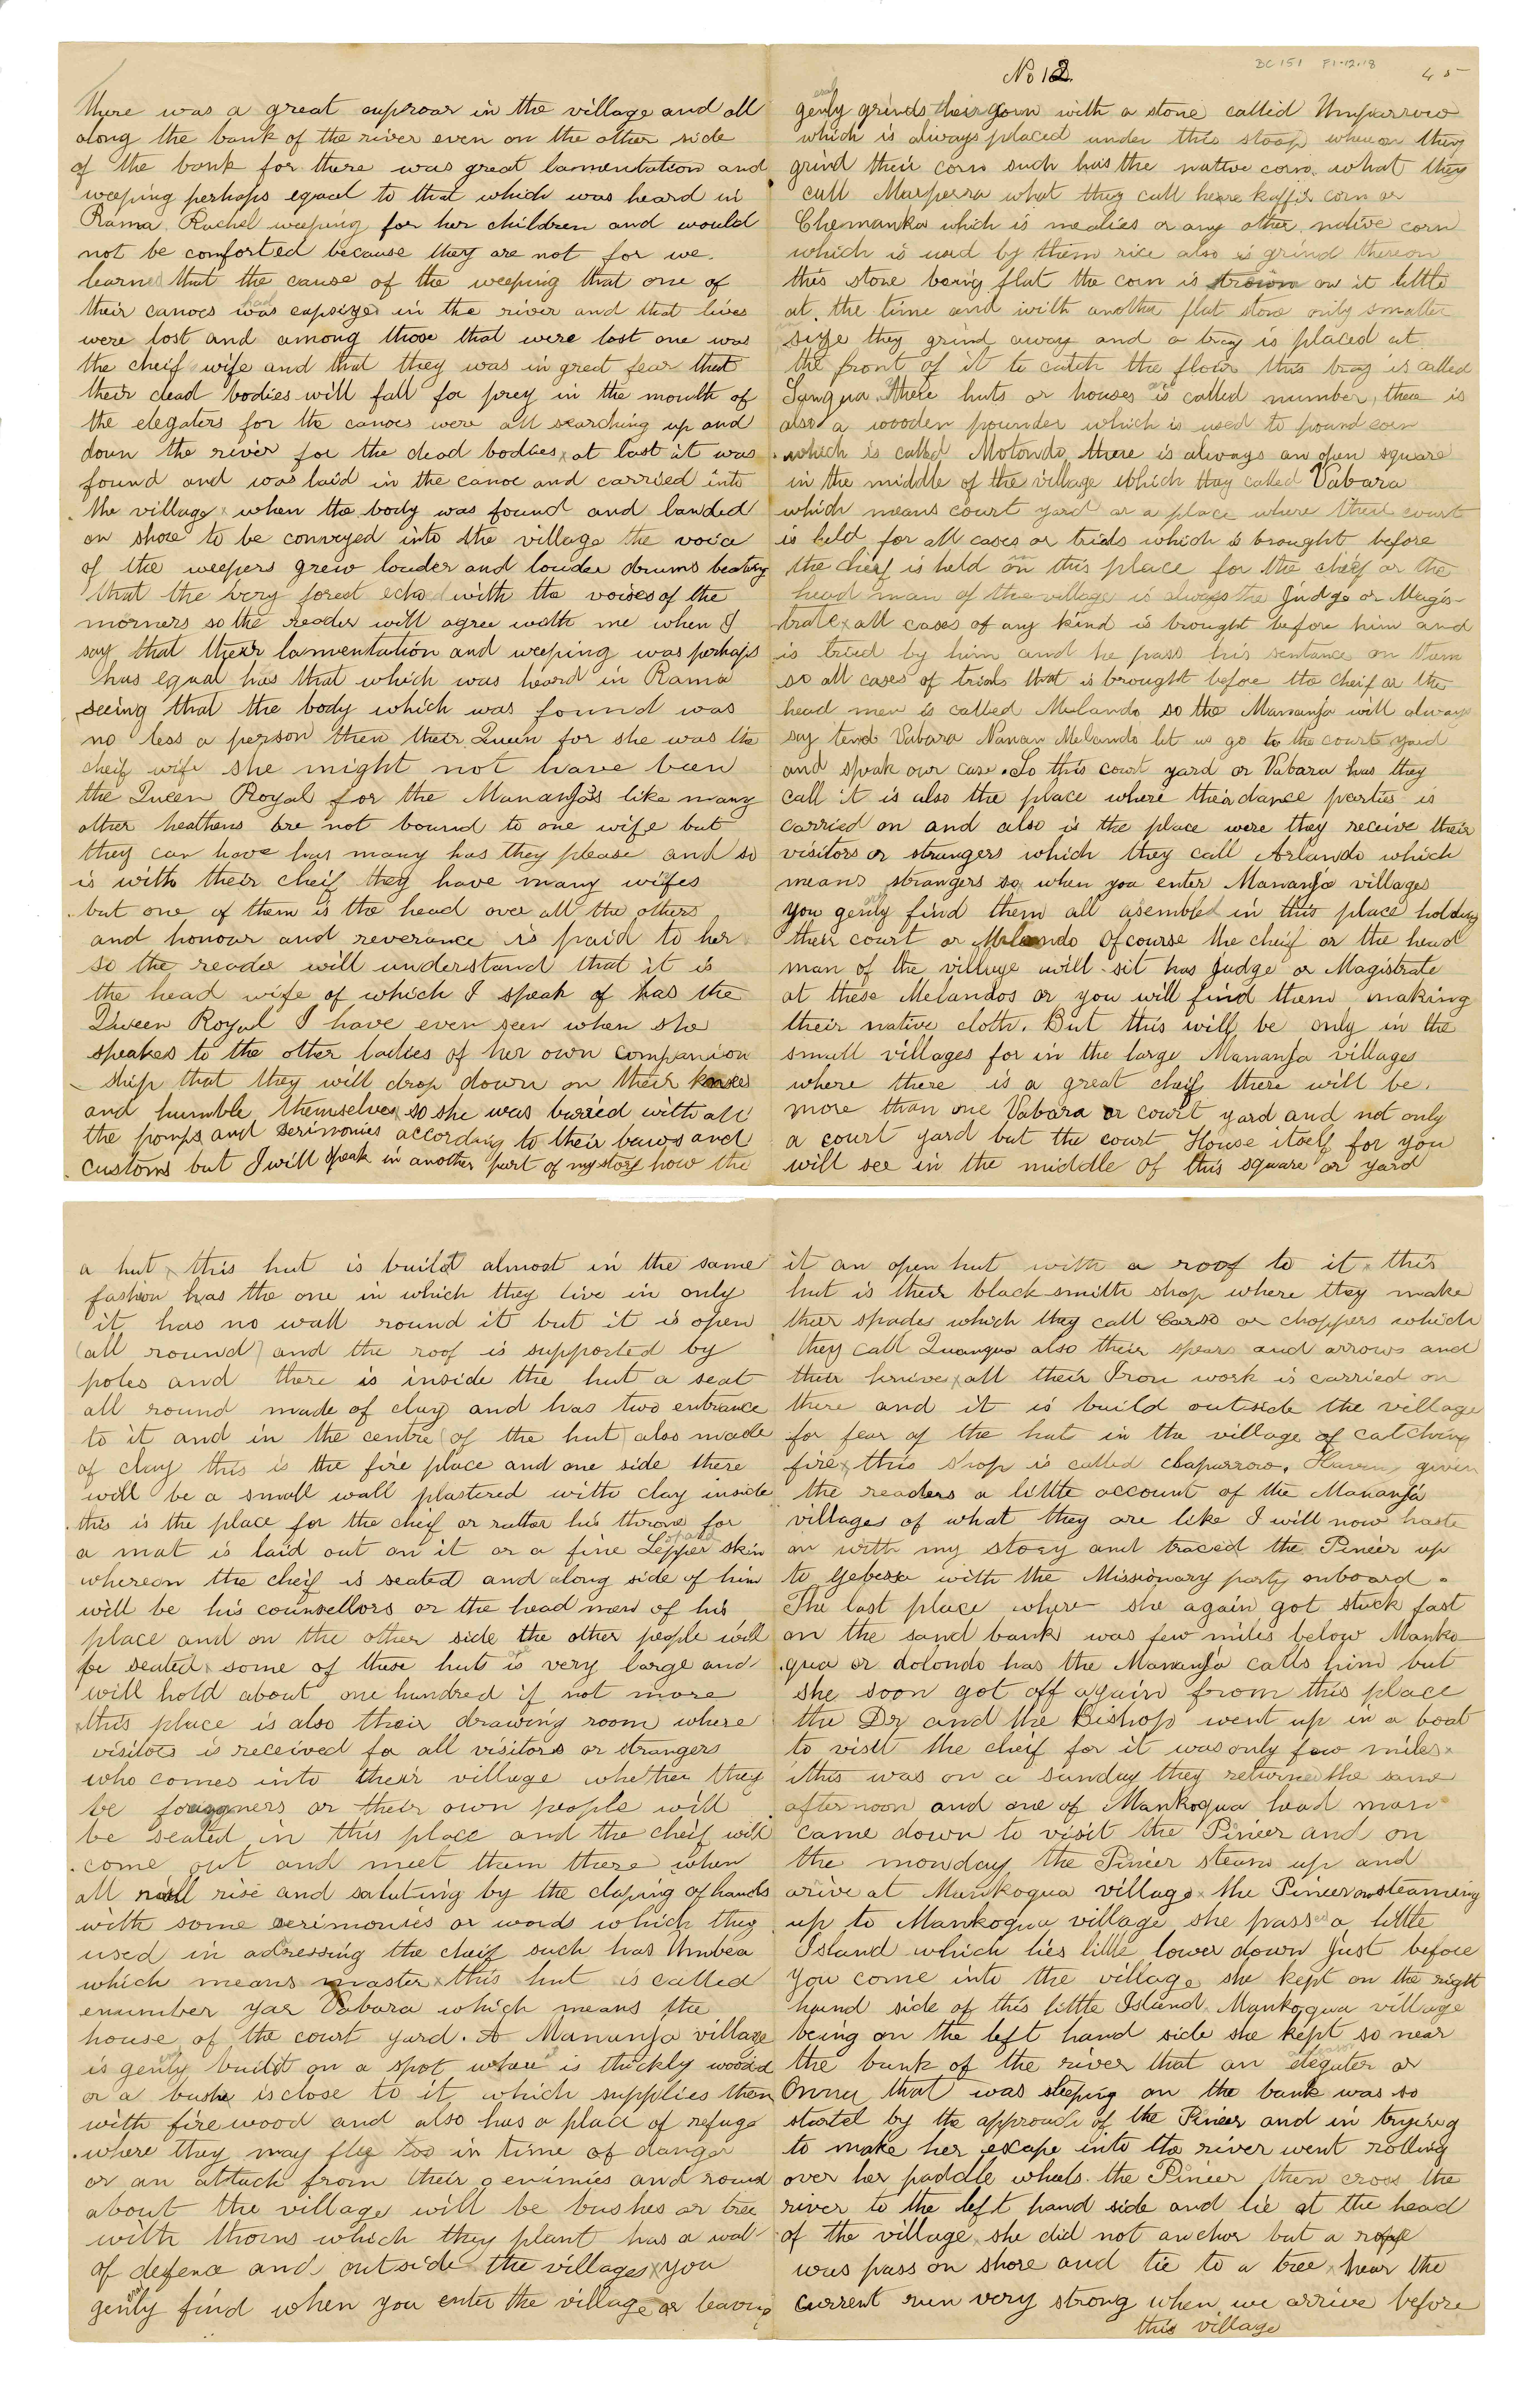 There was a great auproar in the village and all
along the bank of the river even on the other side
of the bank for there was great lamentation and
weeping perhaps egael to that which was heard in
Rama Rachel weeping for her children and would
not be comforted because they are not for we
learned that the cause of the weeping that one of
their canoes was had capsized in the river and that lives
were lost and among those that were lost one was
the cheif wife and that they was in great fear that
their dead bodies will fall for prey in the mouth of
the elegaters for the canoes were all searching up and
down the river for the dead bodies x at last it was
found and was laid in the canoe and carried into
the village x when the body was found and landed
on shore to be conveyed into the village the voice
of the weepers grew louder and louder drums beating
that the very forest echo with the voises of the
morners so the reader will agree with me when I
say that their lamentation and weeping was perhaps
has egual has that which was heard in Rama
seeing that the body which was found was
no less a person then their Queen for she was the
cheif wife she might not have been
the Queen Royal for the Mananja's like many
other heathens are not bound to one wife but
they can have has many has they please and so
is with their cheif they have many wifes
but one of them is the head over all the others
and honour and reverance is paid to her
so the reader will understand that it is
the head wife of which I speak of has the
Queen Royal I have even seen when she
speakes to the other ladies of her own companion
ship that they will drop down on their knees
and humble themselves so she was buried with all
the pomps and serimonies according to their laws and
customs but I will speak in another part of my story how the
No 12
BC 151 F1.12.18
45
genly grinds their corn with a stone called Umparrow
which is always placed under this stoop when on they
grind their corn such has the native corn what they
call Marperra what they call here kaffir corn or
Chemanka which is mealies or any other native corn
which is used by them rice also is grind thereon
this stone being flat the corn is on it little
at the time and with another flat stone only smaller
size they grind away and a tray is placed at
the front of it to catch the flour this tray is called
Sangua there huts or houses is called number, there is
also a wooden pounder which is used to pound corn
which is called Motondo there is always an open square
in the middle of the village which they called Vabara
which means court yard or a place where their court
is held for all cases or trials which is brought before
the cheif is held on this place for the cheif or the
head man of the village is always the Judge or Magis-
trate x all cases of any kind is brought before him and
is tried by him and he pass his sentance on them
so all cases of trials that is brought before the cheif or the
head men is called Melando so the Mananja will always
say tend Vabara Nanan Melando let us go to the court yard
and speak our case. So this court yard or Vabara has they
call it is also the place where their dance parties is
carried on and also is the place were they receive their
visitors or strangers which they call Arlando which
means strangers so when you enter Mananja villages
you genly find them all asembled in this place holding
their court or Melando Ofcourse the cheif or the head
man of the village will sit has Judge or Magistrate
at these Melandos or you will find them making
their native cloth. But this will be only in the
small villages for in the large Mananja villages
where there is a great cheif there will be
more than one Vabara or court yard and not only
a court yard but the court House itself for you
will see in the middle of this square or yard
a hut x this hut is build almost in the same
fashion has the one in which they live in only
it has no wall round it but it is open
(all round) and the roof is supported by
poles and there is inside the hut a seat
all round made of clay and has two entrance
to it and in the centre (of the hut) also made
of clay this is the fire place and one side there
will be a small wall plastered with clay inside
this is the place for the cheif or rather his throne for
a mat is laid out on it or a fine Leopard skin
whereon the cheif is seated and along side of him
will be his counsellors or the head men of his
place and on the other side the other people will
be seated x some of these huts is very large and
will hold about one hundred if not more
this place is also their drawing room where
visitors is received for all visitors or strangers
who comes into their village whether they
be foriggners or their own people will
be seated in this place and the cheif will
come out and meet them there when
all will rise and saluting by the claping of hands
with some serimonies or words which they
used in adressing the cheif such has Umbea
which means master x this hut is called
enumber yar Vabara which means the
house of the court yard. A Mananja village
is genly build on a spot where is thickly wooded
or a bushe is close to it which supplies them
with firewood and also has a place of refuge
where they may fly too in time of danger
or an attack from their enimies and round
about the village will be bushes or tree
with thorns which they plant has a wall
of defence and outside the villages x you
genly find when you enter the village or leaving
it an open hut with a roof to it x this
hut is their black smith shop where they make
their spades which they call Carso or choppers which
they call Quanqua also their spears and arrows and
their knive x all their Iron work is carried on
there and it is build outside the village
for fear of the hut in the village of catching
fire x this shop is called chaparrow. Having given
the readers a little account of the Mananja
villages of what they are like I will now haste
on with my story and traced the Pineer up
to with the Missionary party onboard.
The last place where she again got stuck fast
on the sand bank was few miles below Manko-
qua or dolondo has the Mananja calls him but
she soon got off again from this place
the Dr and the Bishop went up in a boat
to visit the cheif for it was only few miles x
this was on a sunday they returned the same
afternoon and one of Mankoqua head man
came down to visit the Pineer and on
the monday the Pineer steam up and
arive at Mankoqua village x the Pineer on steaming
up to Mankoqua village she passed a little
Island which lies little lower down Just before
you come into the village she kept on the right
hand side of this little Island Mankoqua village
being on the left hand side she kept so near
the bank of the river that an elegater or
that was sleeping on the bank was so
startel by the approach of the Pineer and in trying
to make her escape into the river went rolling
over her paddle wheels the Pineer then cross the
river to the left hand side and lie at the head
of the village she did not anchor but a rope
was pass on shore and tie to a tree x hear the
current run very strong when we arrive before
this village